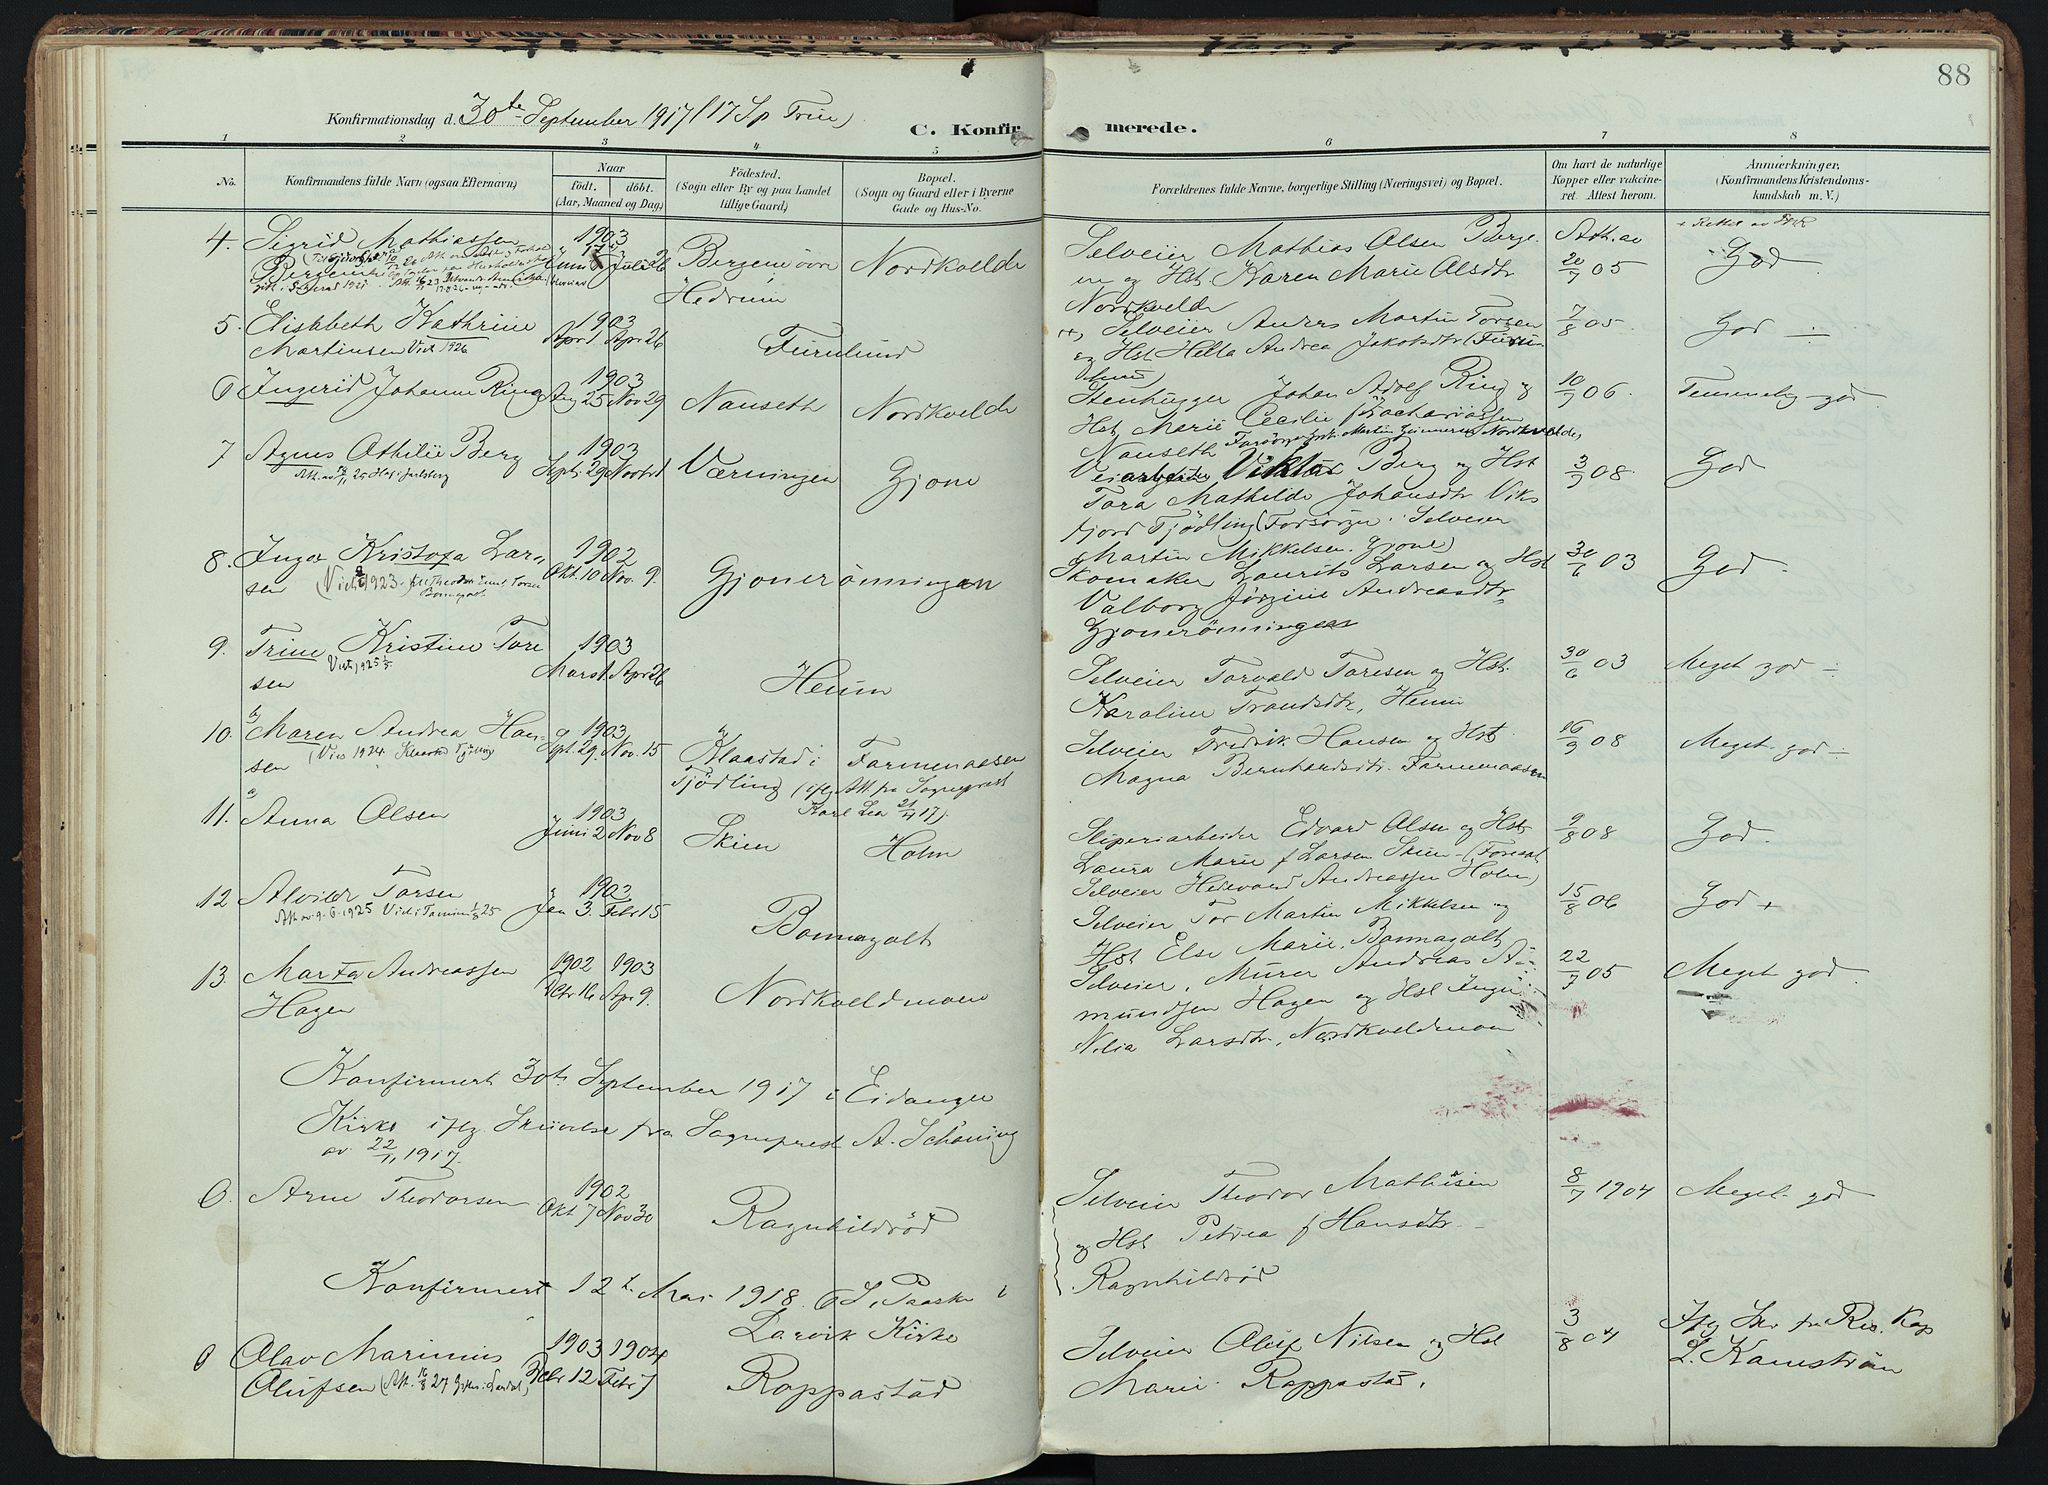 88
Konfirmationsdag d. 30te September 1917 (17 Sp Trin)
C. Konfirmerede.
1 2 3 4 5 6 7 8
No.
Konfirmandens fulde Navn (ogsaa Efternavn.)
Naar
födt. döbt.
(Aar, Maaned og Dag.)
Födested.
(Sogn eller By og paa Landet
tillige Gaard.)
Bopæl.
(Sogn og Gaard eller i Byerne
Gade og Hus-No.
Forældrenes fulde Navne, borgerlige Stilling (Næringsvei) og Bopæl.
Om havt de naturlige
Kopper eller vakcine-
ret. Attest herom.
Anmærkninger.
(Konfirmandens Kristendoms-
kundskab m. V.)
4. Sigrid Mathiassen
Bergene
1903
Juli 26
Bergene övre
Hedrum
Nordkvelde
Selveier Mathias Olsen Berge
ne og Hst. Karen Marie Olsdtr
Nordkvelde
Att. av
20/7 05
God
5. Elisabeth Kathrine
Martinsen Viet 1926
1903
Apr 1 Apr 26
Furulund
Selveier Anders Martin Torsen
og Hst Helta Andrea Jakobsdtr (Furu
lund)
7/8 05
God ÷
6 Ingerid Johanne Ring
1903
Aug 25 Nov 29
Nauseth
Nordkvelde
Stenhugger Johan Adolf Ring og
Hst Marie Cecilie f Zachariassen
Nauseth
10/9 06.
Temmelig god
7 Agnes Othilie Berg
1903
Sept. 29 Novbr 1
Værningen
Gjone
Veiarbeider Viktor Berg og Hst
Tora Mathilde Johansdtr Viks
fjord Tjödling (Forsörger: Selveier
Martin Mikkelsen. Gjone)
3/9 08.
God
8. Inga Kristofa Lar-
sen
1902
Okt. 10 Nov. 9.
Gjonerönningen
Skomaker Laurits Larsen og Hst
Valborg Jörgine Andreasdtr
Gjonerönningen
30/6 03
God.
9. Trine Kristine Tore
sen
Viet 1925
1903
Mars 1 Apr 26
Heum
Selveier Torvald Toresen og Hst.
Karoline Trondsdtr, Heum
30/6 03
Meget god ÷
10. Maren Andrea Han-
sen
1903
Spt. 29. Nov. 15
Klaastad i
Tjödling
Farmenaasen
(iflg Att. fra Sogneprest
Karl Lea 21/4 17).
Selveier Fredrik Hansen og Hst
Magna Bernhardsdtr. Farmenaasen
16/9 08
Meget god ÷
11. Anna Olsen
1903
Juni 2 Nov 8
Skien
Holm
Sliperiarbeider Edvard Olsen og Hst
Laura Marie f Larsen Skien
Selveier Andreassen Holm)
9/8 08
God.
12 Alvilde Torsen
Att av 9-6-1925
1903
Jan 3. Febr 15
Bonnagolt
Selveier Tor Martin Mikkelsen og
Hst Else Marie, Bonnagolt
15/8 06
God +
13. Marta Andreassen
Hagen
1902 1903
Apr 9.
Nordkveldmoen
Selveier, Murer Andreas A-
mundsen Hagen og Hst Inga
Nilia Larsdtr., Nordkveldmoen
22/7 05
Meget god
Konfirmert 30te September 1917 i Eidanger
Kirke iflg. Skrivelse fra Sogneprest A. Schöning
av 22/11 1917.
0. Arne Theodorsen
1902
Okt 7 Nov 30
Ragnhildröd
Selveier Theodor Mathisen
og Hst Petrea f Hansdtr
Ragnhildröd
8/7 1904
Meget god
Konfirmert 12te Mai 1918 6 S. Paaske i
Larvik Kirke
0 Olav Marinius
Olufsen
1903 1904
Febr 7
Rappastad
Selveier Oluf Nilsen og Hst
Marie. Rappastad.
3/8 04
Iflg Skr fra Res. Kap
L. Kamström